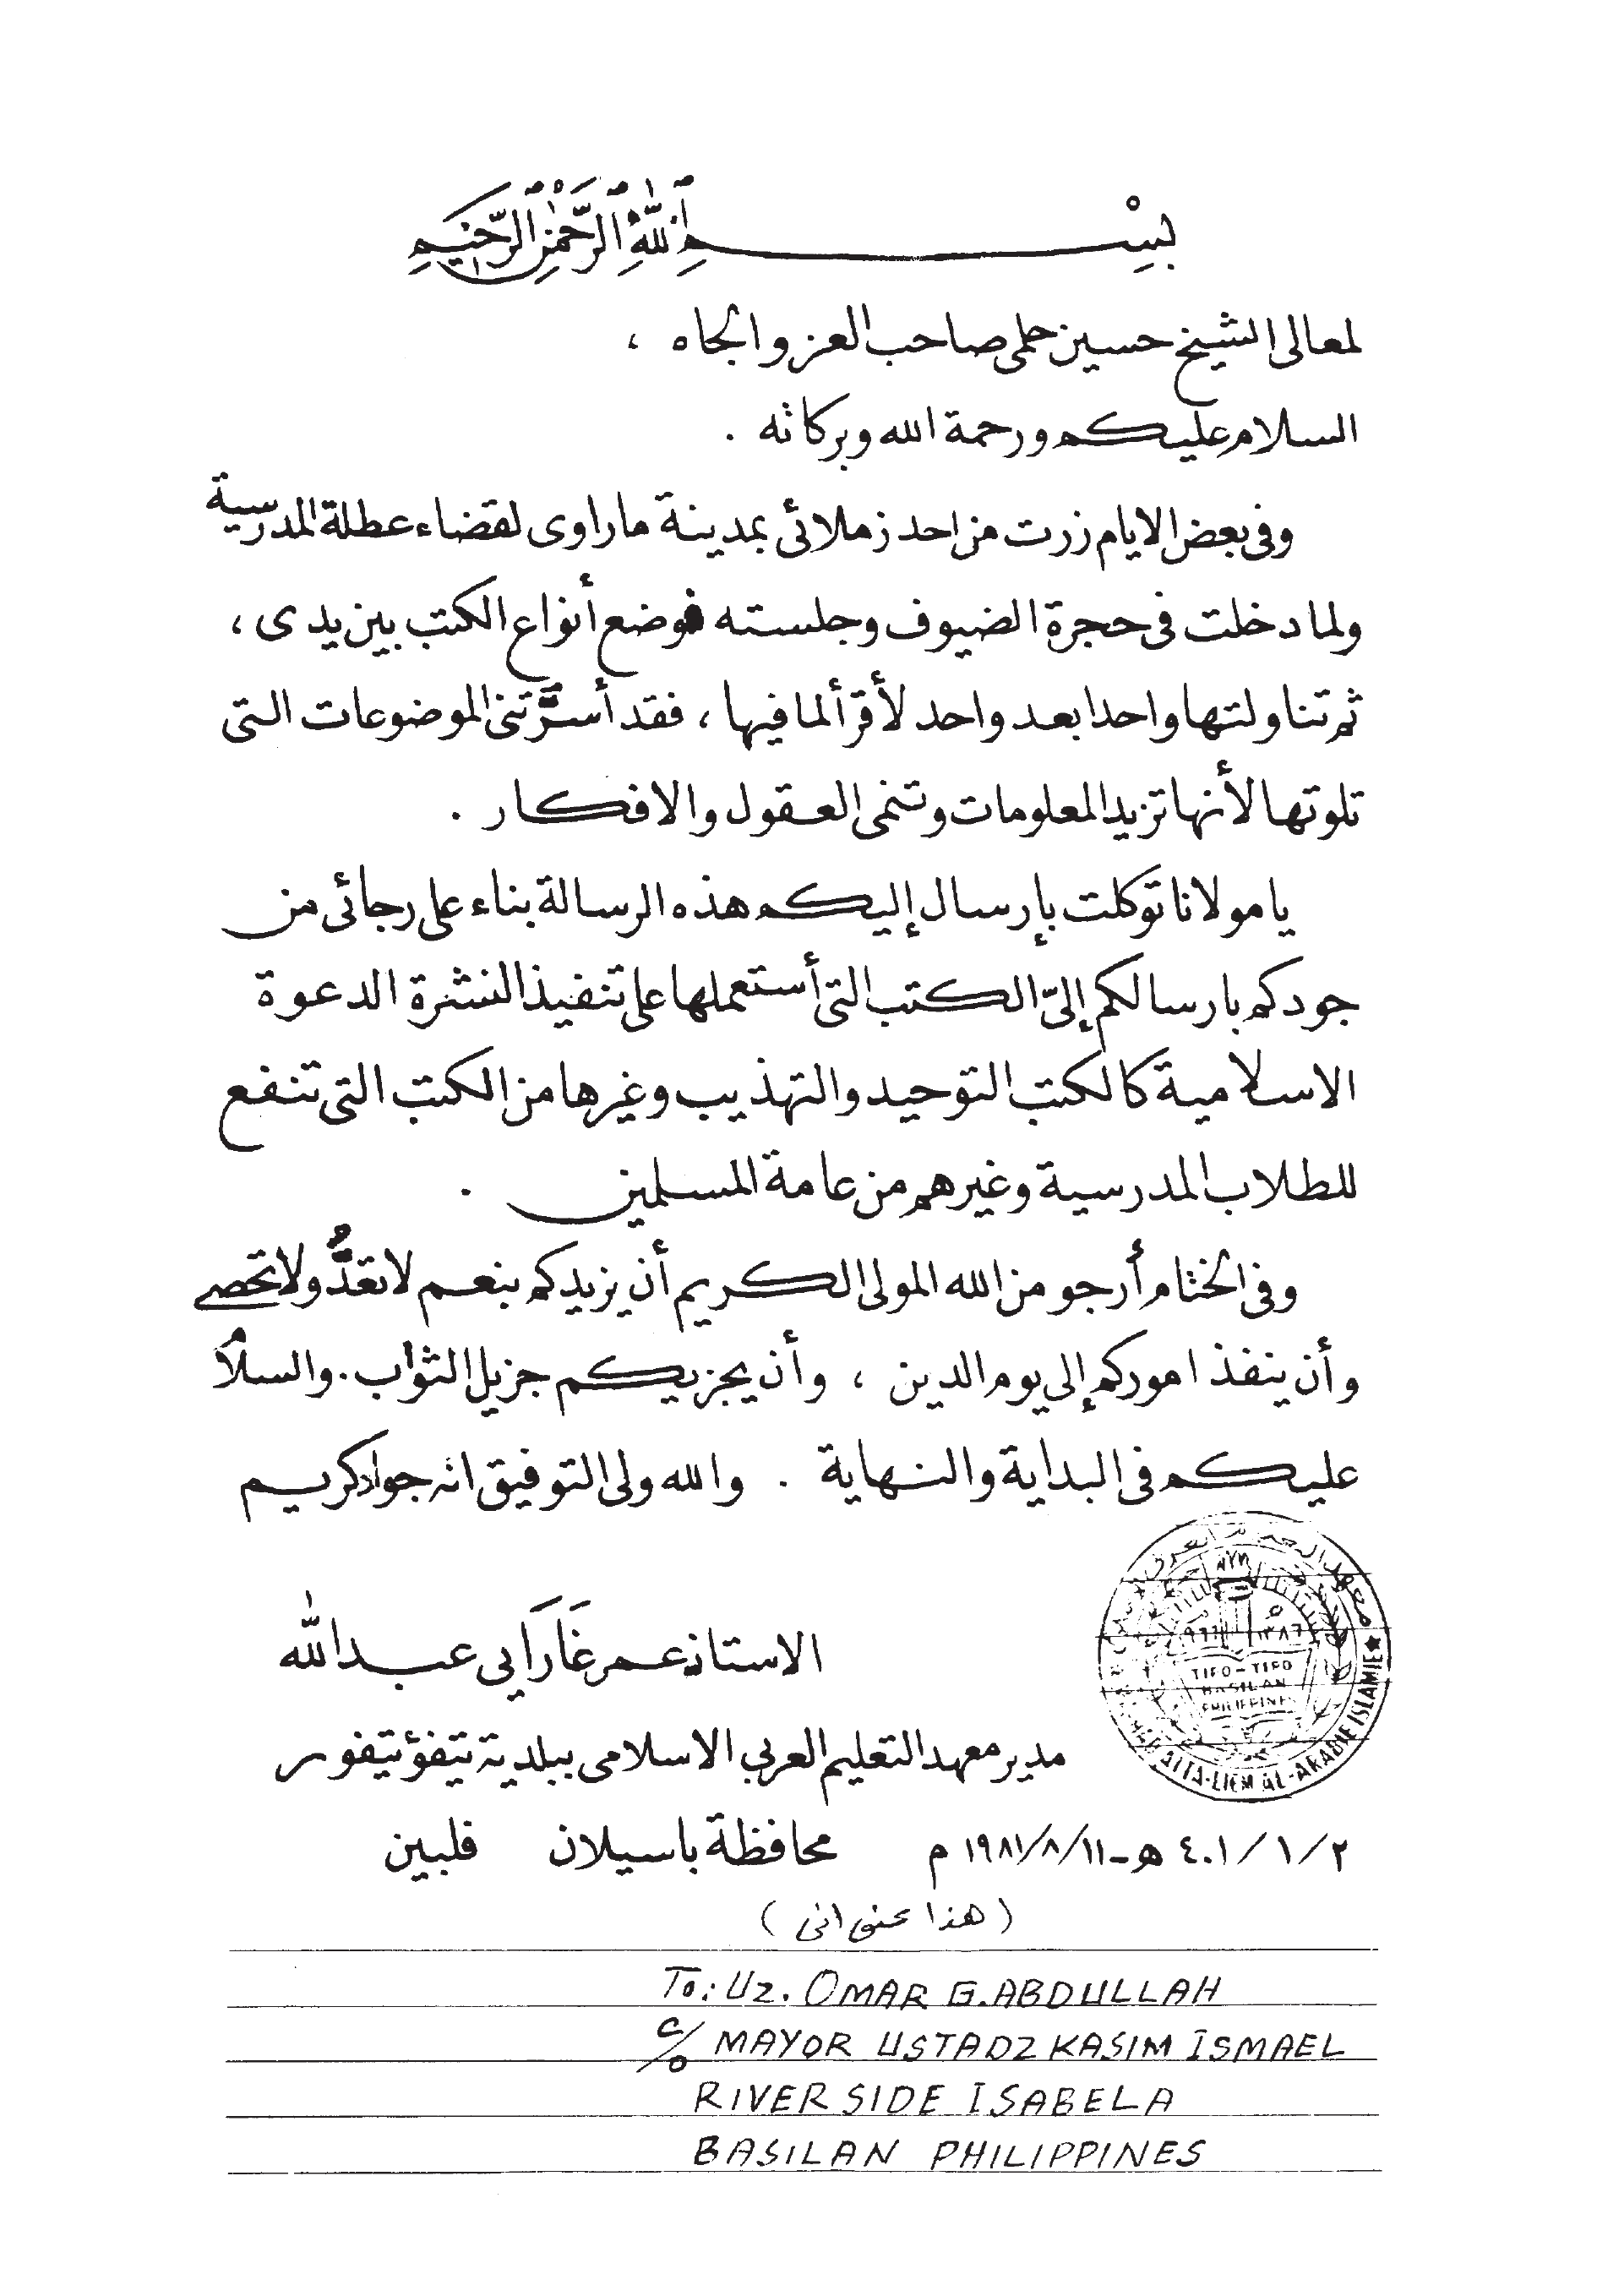 بِسْــــــمِ ٱللّٰهِ ٱلرَّحْمٰنِ ٱلرَّحِيمِ
لمعالى الشيخ حسين حلمى صاحب العز والجاه ،
السلام عليكم ورحمة الله وبركاته .
وفى بعض الايام زرت من احد زملائى بمدينة ماراوى لقضاء عطلة المدرسية
ولما دخلت فى حجرة الضيوف وجلسته فوضع أنواع الكتب بين يدى ،
ثم تناولتها واحدا بعد واحد لأقرأ لما فيها ، فقد أسرَّتنى الموضوعات التى
تلوتها لأنها تزيد المعلومات وتنمى العقول والافكار .
يا مولانا توكلت بإرسال إليكم هذه الرسالة بناء على رجائى من
جودكم بارسالكم إلىّ الكتب التى أستعملها على تنفيذ النشرة الدعوة
الاسلامية كالكتب التوحيد والتهذيب وغيرها من الكتب التى تنفع
للطلاب المدرسية وغيرهم من عامة المسلمين .
وفى الختام أرجو من الله المولى الكريم أن يزيدكم بنعم لا تعدُّ ولا تحصى
وأن ينفذ اموركم إلى يوم الدين ، وأن يجزيكم جزيل الثواب . والسلام
عليكم فى البداية والنهاية . والله ولى التوفيق انه جواد كريم
الاستاذ عمر غَارَابى عبد الله
مدير معهد التعليم العربى الاسلامى ببلدية تيفؤ تيفور
محافظة باسيلان فلبين
٢/١/١٤٠١ هـ - ١٩٨١/٨/١١ م
TIPO-TIPO
BASILAN
PHILIPPINES
AL-ARABIE ISLAMIE
(هذا عنوانى)
To: Uz. OMAR G. ABDULLAH
c/o MAYOR USTADZ KASIM ISMAEL
RIVER SIDE ISABELA
BASILAN PHILIPPINES